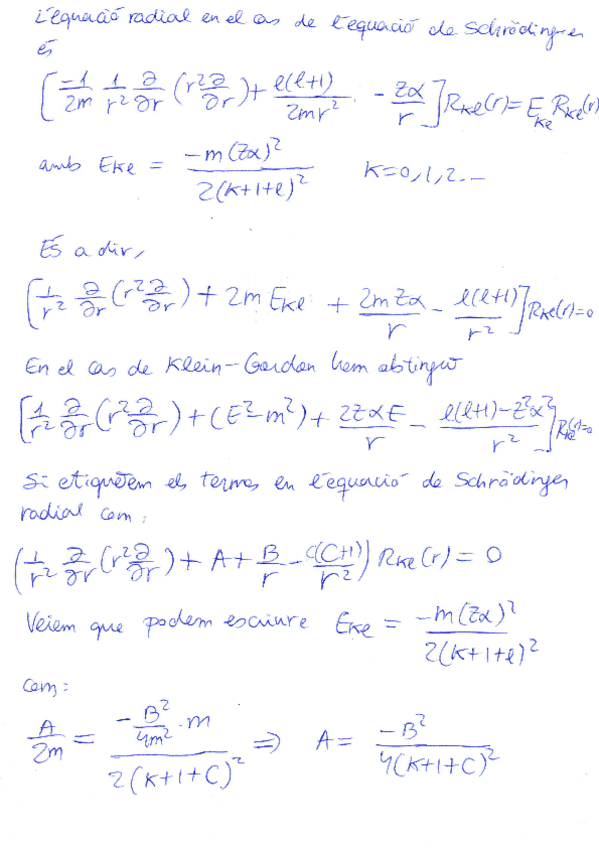 L'equació radial en el cas de l'equació de Schrödinger
és
[-1/2m 1/r² ∂/∂r (r² ∂/∂r) + l(l+1)/2mr² - Zα/r] R_Kl(r) = E_Kl R_Kl(r)
amb E_Kl = -m(Zα)²/2(K+1+l)²   K=0,1,2...
És a dir,
[1/r² ∂/∂r (r² ∂/∂r) + 2m E_Kl + 2mZα/r - l(l+1)/r²] R_Kl(r)=0
En el cas de Klein-Gordon hem obtingut
[1/r² ∂/∂r (r² ∂/∂r) + (E²-m²) + 2ZαE/r - l(l+1)-Z²α²/r²] R_Kl(r)=0
Si etiquetem els termes en l'equació de Schrödinger
radial com:
(1/r² ∂/∂r (r² ∂/∂r) + A + B/r - C(C+1)/r²) R_Kl(r) = 0
Veiem que podem escriure E_Kl = -m(Zα)²/2(K+1+l)²
com:
A/2m = -B²/4m² · m / 2(K+1+C)² ⇒ A = -B²/4(K+1+C)²